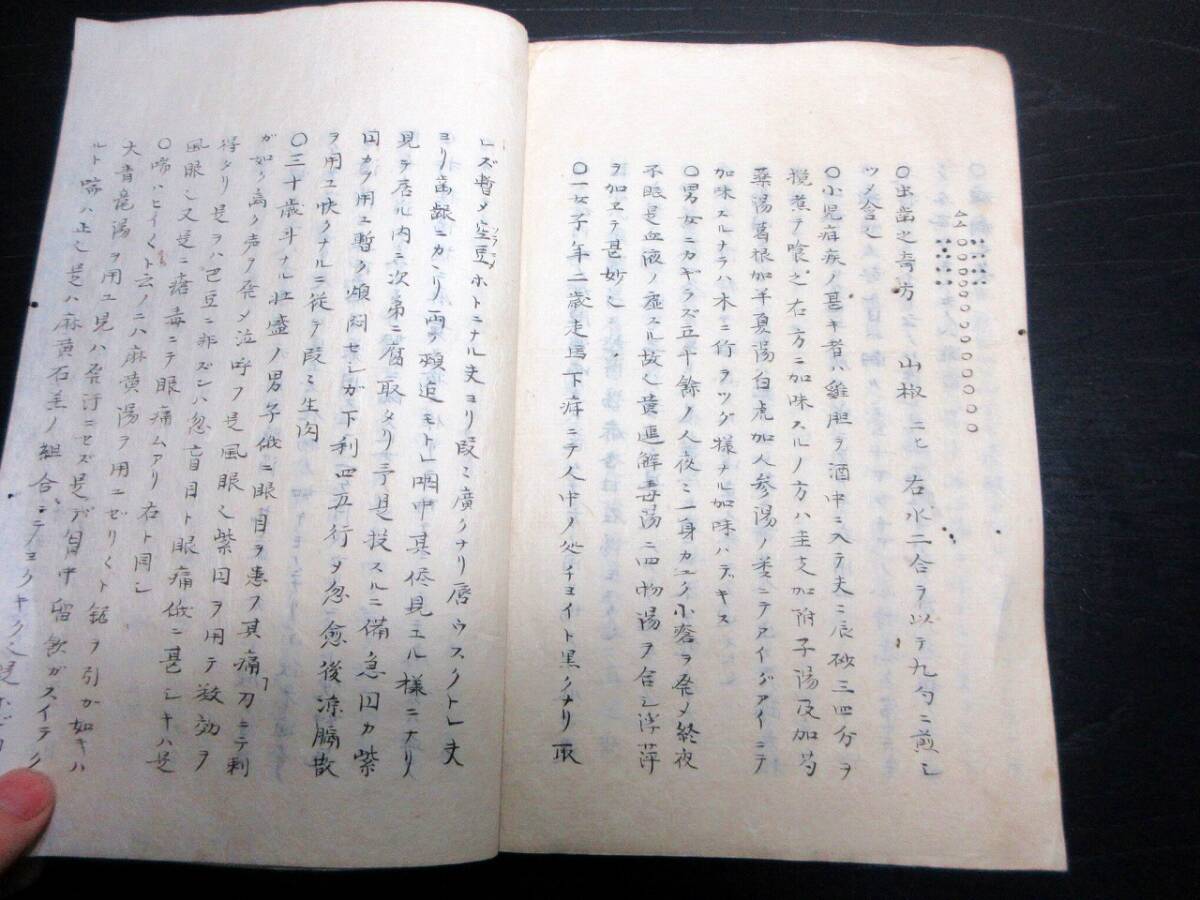 〇出歯之奇方 山椒 二匕 右水二合ヲ以テ九勺ニ煎シ
ツメ含之
〇小児疳疾ノ甚キ者ハ雞胆ヲ酒中ニ入テ夫ニ辰砂三四分ヲ
攪煮テ喰之右方ニ加味スルノ方ハ圭支加附子湯及加芍
薬湯葛根加半夏湯白虎加人参湯ノ类ニテアイダアイニテ
加味スルナラハ木ニ竹ヲツグ様ナル加味ハデキス
〇男女ニカギラズ五十餘ノ人夜ミ一身カユク小瘡ヲ発メ終夜
不眠是血液ノ虚スル故也黄連解毒湯ニ四物湯ヲ合シ浮萍
ヲ加ヱテ甚妙也
〇一女子年二歳走馬下疳ニテ人中ノ処チヨイト黒クナリ取
レズ暫メ空豆ホトニナル夫ヨリ段ミ廣クナリ唇ウスクトレ夫
ヨリ歯齦ニカヽリ両ノ頬迠モトレ咽中其侭見ヱル様ニナリ
見テ居ル内ニ次第ニ腐取タリ于是投スルニ備急円カ紫
円カヲ用ユ暫ク煩悶セシガ下利四五行メ忽愈後涼膈散
ヲ用ユ快クナルニ従テ段ミ生肉
〇三十歳斗ナル壮盛ノ男子俄ニ眼目ヲ患フ其痛刀ニテ刺
ガ如ク高ク声ヲ発メ泣呼フ是風眼也紫円ヲ用テ救効ヲ
得タリ是ヲハ巴豆ニ非ズンハ忽盲目ト眼痛俄ニ甚シキハ是
風眼也又是ニ瘡毒ニテ眼痛ムアリ右ト同シ
〇喘ハヒイくト云ノニハ麻黄湯ヲ用ニゼリくト鋸ヲ引カ如キハ
大青竜湯ヲ用ユ見ハ発汗ニセズ是ガ胸中留飲ガスイテク
ルト喘ハ止也是ハ麻黄石膏ノ組合ニテヨクキク也